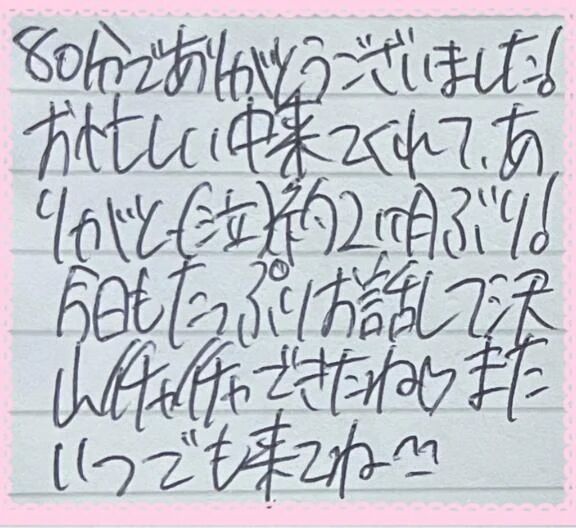 80分でありがとうございました!
お忙しい中来てくれて、あ
りがと(泣)約2ヶ月ぶり!
今日もたっぷりお話しして沢
山イチャイチャできたね♡また
いつでも来てね^^